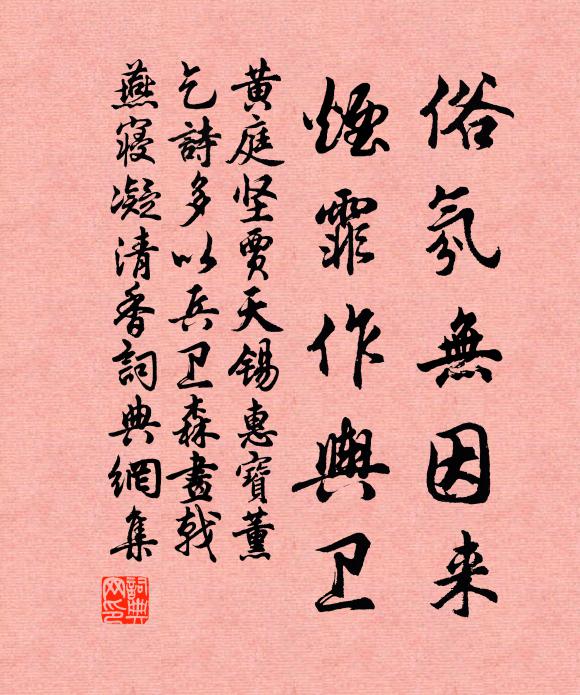 俗氛無因来
煙霏作輿卫
黄庭坚贾天锡惠寶薰
乞詩多以兵卫森畫戟
燕寝凝清香詞典網集
詞典网印